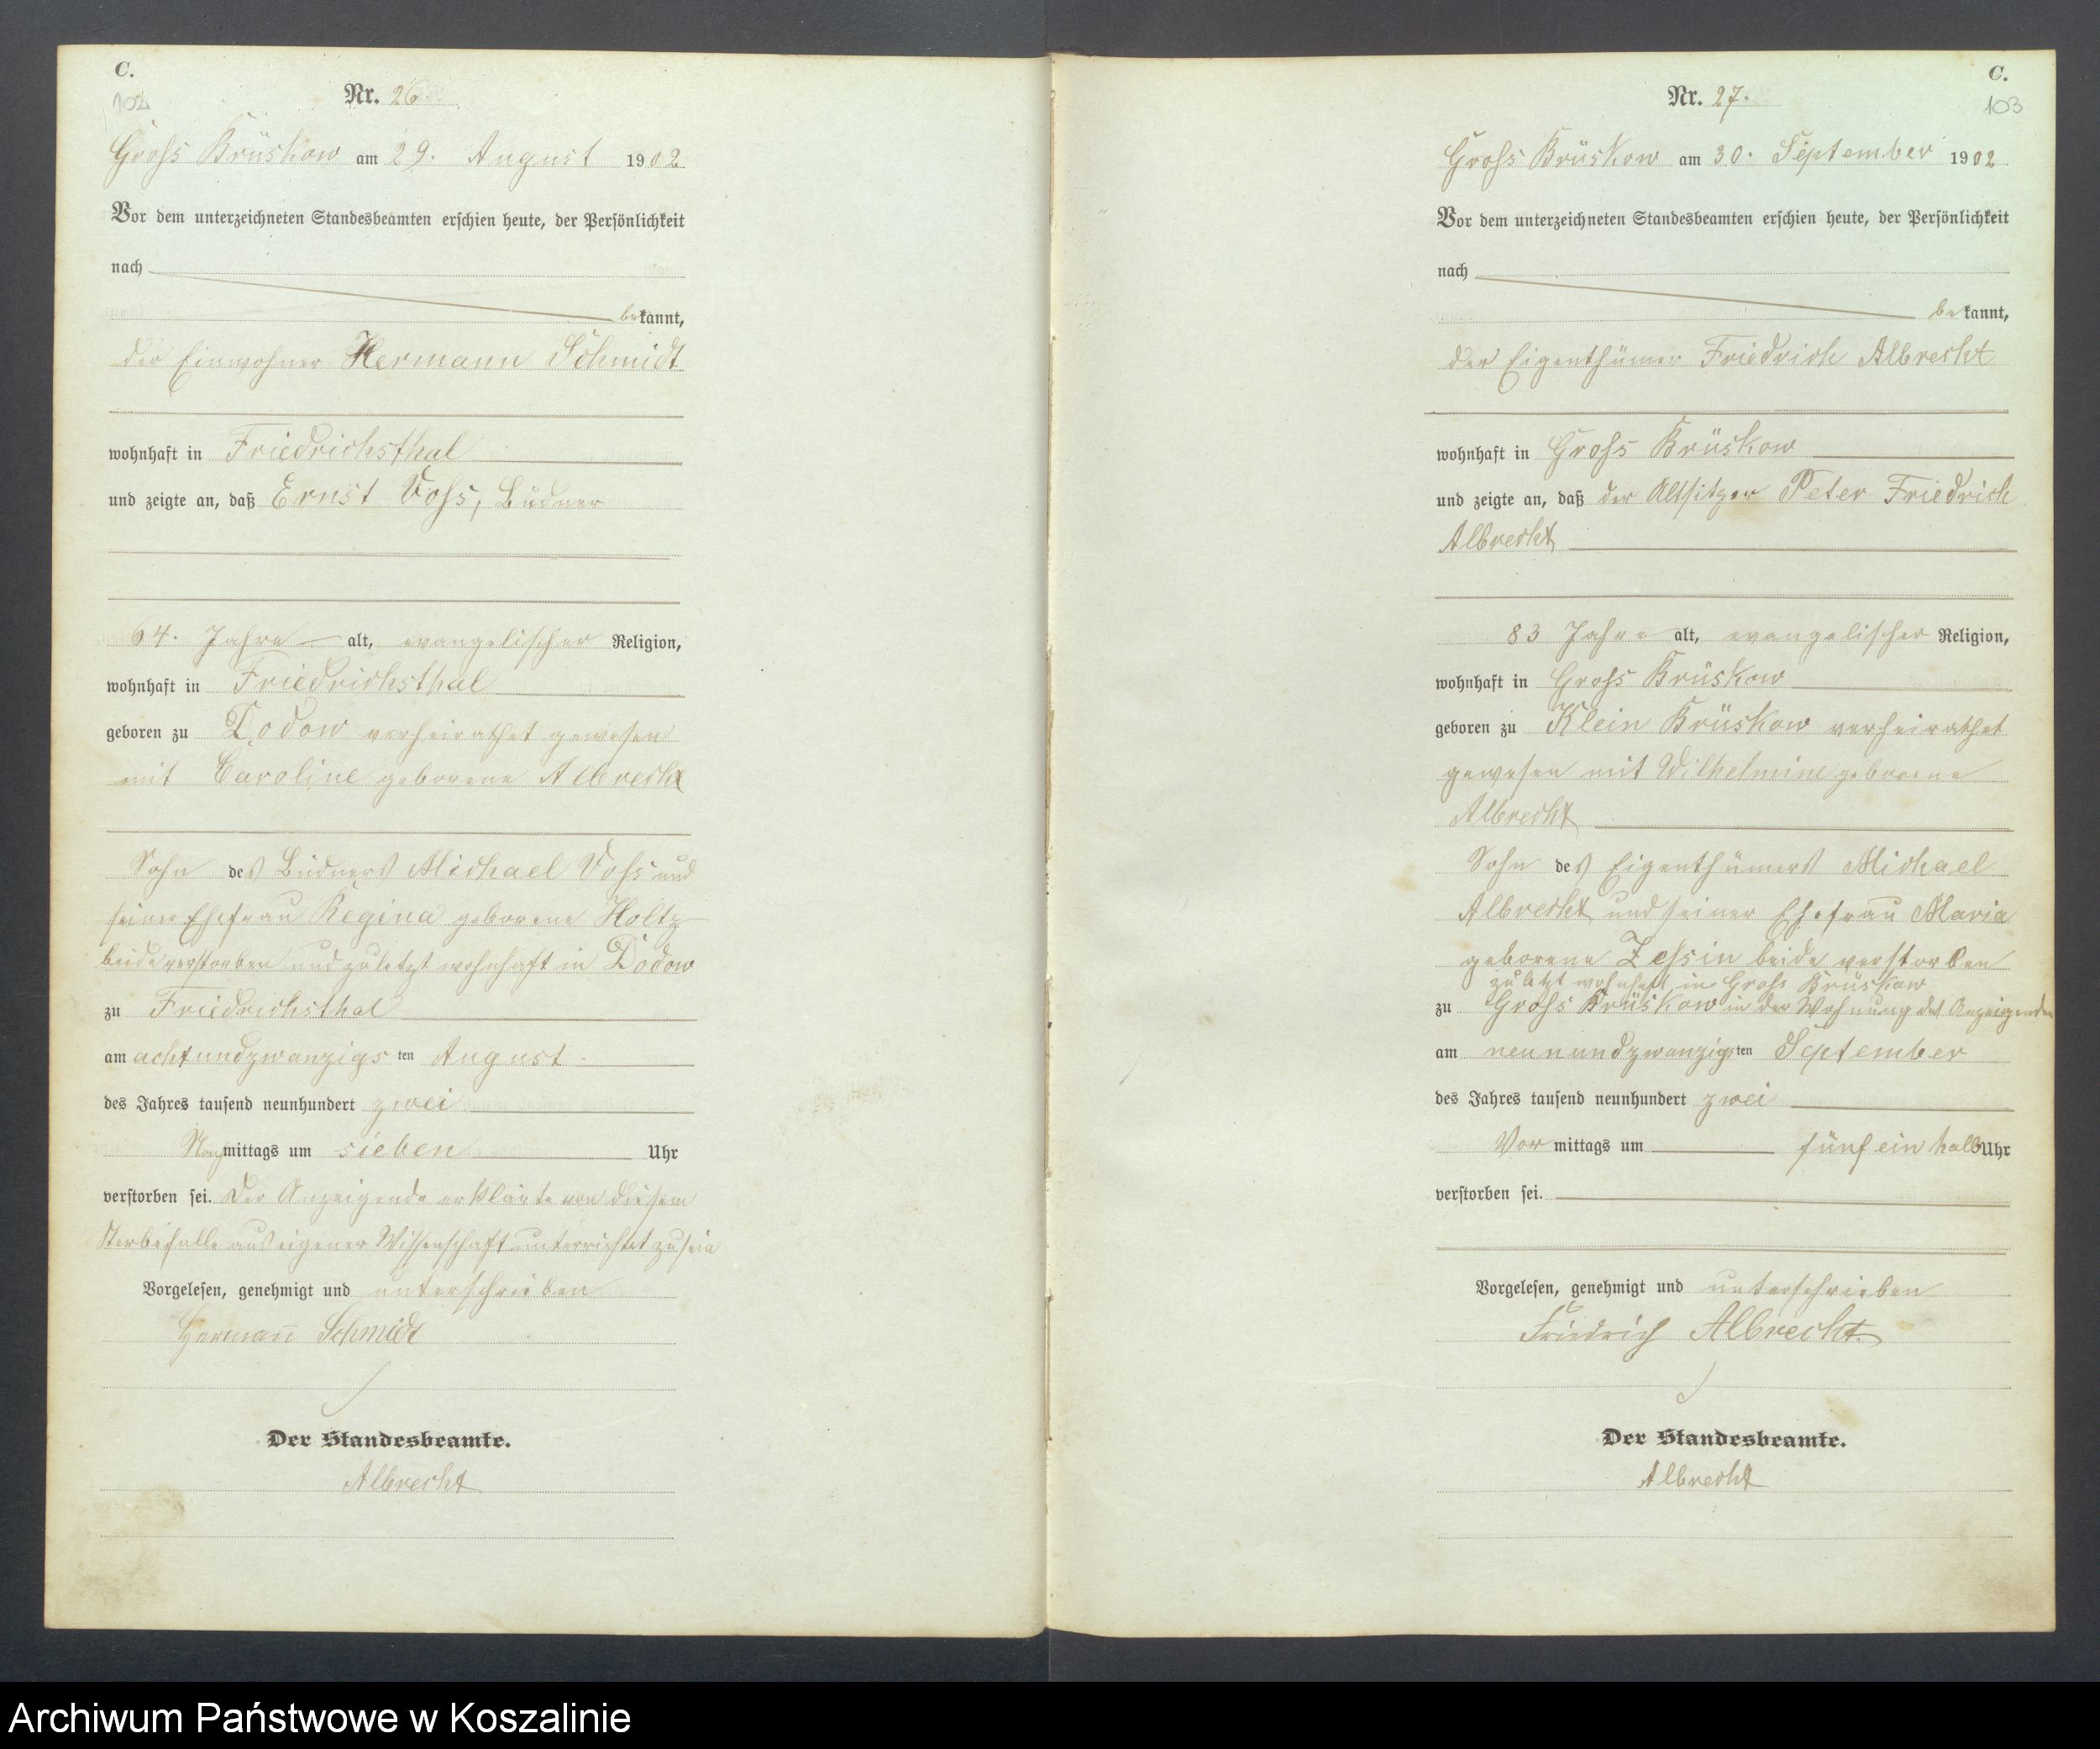 C.
102
Nr. 26.
Groſs Brüskow am 29. August 1902
Vor dem unterzeichneten Standesbeamten erschien heute, der Persönlichkeit
nach
bekannt,
der Einwohner Hermann Schmidt
wohnhaft in Friedrichsthal
und zeigte an, daß Ernst Voſs, Büdner
64. Jahre alt, evangelischer Religion,
wohnhaft in Friedrichsthal
geboren zu Dodow verheirathet gewesen
mit Caroline geborene Albrecht
Sohn des Büdners Michael Voſs und
seiner Ehefrau Regina geborene Holtz
beide verstorben und zuletzt wohnhaft in Dodow
zu Friedrichsthal
am achtundzwanzigsten August
des Jahres tausend neunhundert zwei
Nachmittags um sieben Uhr
verstorben sei. Der Anzeigende erklärte von diesem
Sterbefalle aus eigener Wissenschaft unterrichtet zu sein
Vorgelesen, genehmigt und unterschrieben
Hermann Schmidt
Der Standesbeamte.
Albrecht
C.
103
Nr. 27.
Groſs Brüskow am 30. September 1902
Vor dem unterzeichneten Standesbeamten erschien heute, der Persönlichkeit
nach
bekannt,
der Eigenthümer Friedrich Albrecht
wohnhaft in Groſs Brüskow
und zeigte an, daß der Altsitzer Peter Friedrich
Albrecht
83 Jahre alt, evangelischer Religion,
wohnhaft in Groſs Brüskow
geboren zu Klein Brüskow verheirathet
gewesen mit Wilhelmine geborene
Albrecht
Sohn des Eigenthümers Michael
Albrecht und seiner Ehefrau Maria
geborene Zeſsin beide verstorben
zuletzt wohnhaft in Groſs Brüskow
zu Groſs Brüskow in der Wohnung des Anzeigenden
am neunundzwanzigsten September
des Jahres tausend neunhundert zwei
Vormittags um fünf ein halb Uhr
verstorben sei.
Vorgelesen, genehmigt und unterschrieben
Friedrich Albrecht.
Der Standesbeamte.
Albrecht
Archiwum Państwowe w Koszalinie